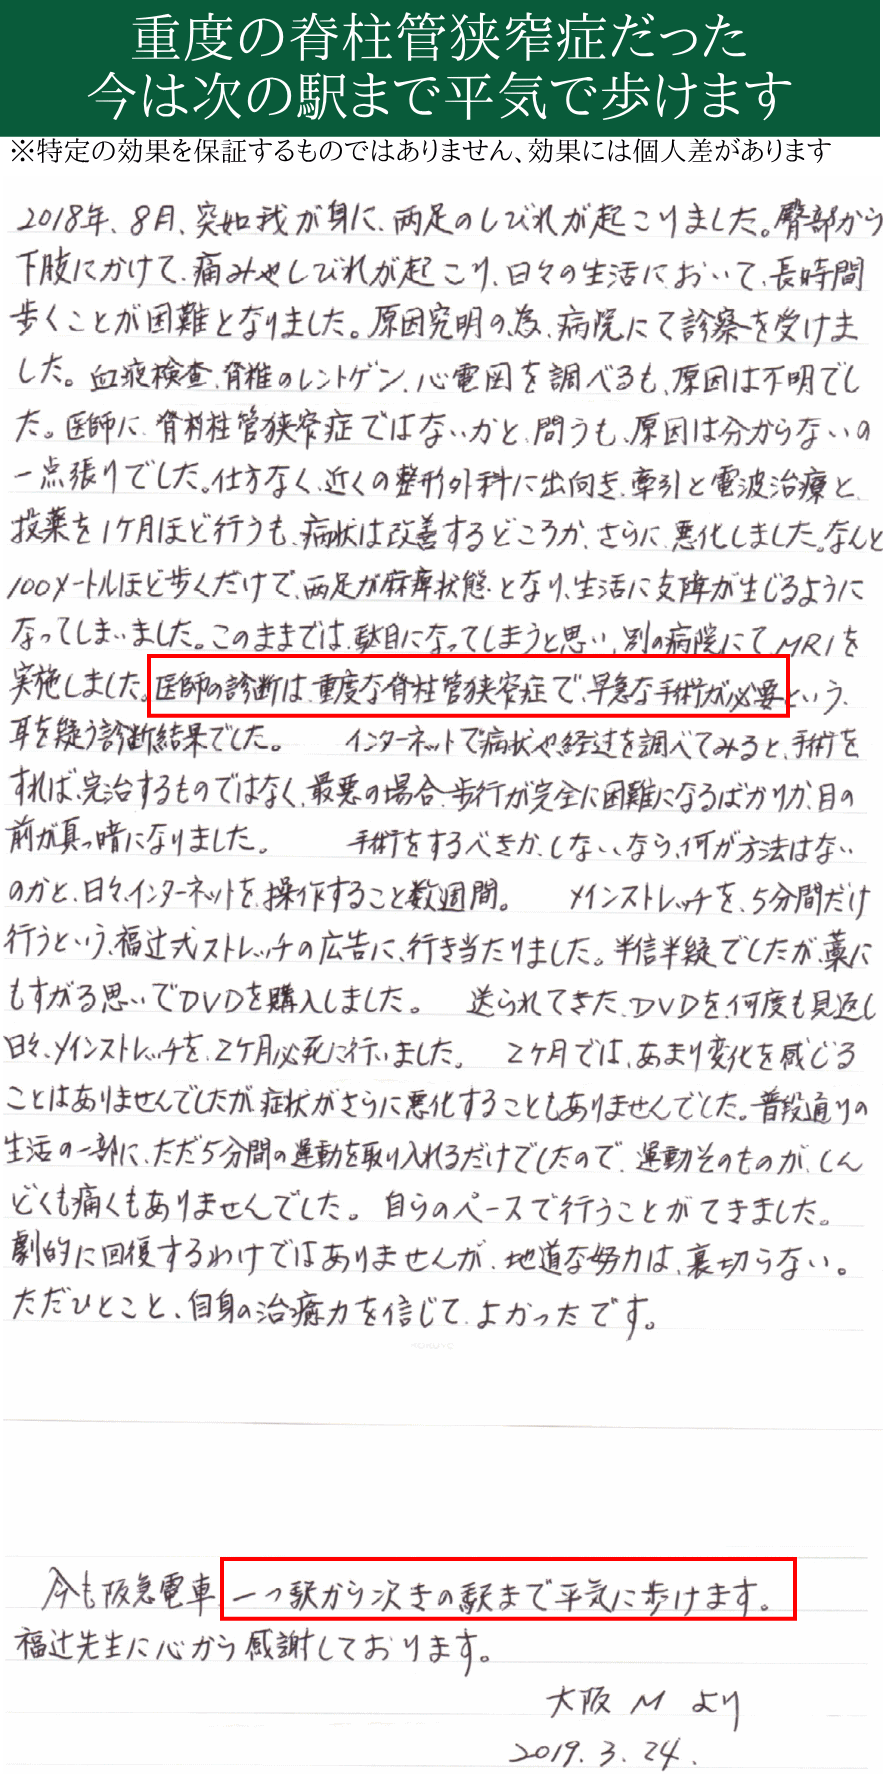 重度の脊柱管狭窄症だった
今は次の駅まで平気で歩けます
※特定の効果を保証するものではありません、効果には個人差があります
2018年、8月、突如我が身に、両足のしびれが起こりました。臀部から
下肢にかけて、痛みやしびれが起こり、日々の生活において、長時間
歩くことが困難となりました。原因究明の為、病院にて診察を受けま
した。血液検査、脊椎のレントゲン、心電図を調べるも、原因は不明でし
た。医師に、脊柱管狭窄症ではないかと、問うも、原因は分からないの
一点張りでした。仕方なく、近くの整形外科に出向き、牽引と電波治療と、
投薬を1ケ月ほど行うも、病状は改善するどころか、さらに、悪化しました。なんと
100メートルほど歩くだけで、両足が麻痺状態となり、生活に支障が生じるように
なってしまいました。このままでは、駄目になってしまうと思い、別の病院にてMRIを
実施しました。医師の診断は、重度な脊柱管狭窄症で、早急な手術が必要という、
耳を疑う診断結果でした。 インターネットで病状や経過を調べてみると、手術を
すれば、完治するものではなく、最悪の場合、歩行が完全に困難になるばかりか、目の
前が真っ暗になりました。 手術をするべきか、しないなら、何か方法はない
のかと、日々、インターネットを、操作すること数週間。 メインストレッチを、5分間だけ
行うという、福辻式ストレッチの広告に、行き当たりました。半信半疑でしたが、藁に
もすがる思いでDVDを購入しました。 送られてきた、DVDを、何度も見返し
日々、メインストレッチを、2ケ月必死に行いました。 2ケ月では、あまり変化を感じる
ことはありませんでしたが、症状がさらに悪化することもありませんでした。普段通りの
生活の一部に、ただ5分間の運動を取り入れるだけでしたので、運動そのものが、しん
どくも痛くもありませんでした。自らのペースで行うことができました。
劇的に回復するわけではありませんが、地道な努力は、裏切らない。
ただひとこと、自身の治癒力を信じて、よかったです。
今も阪急電車、一つ駅から次きの駅まで平気に歩けます。
福辻先生に心から感謝しております。
大阪 M より
2019.3.24.